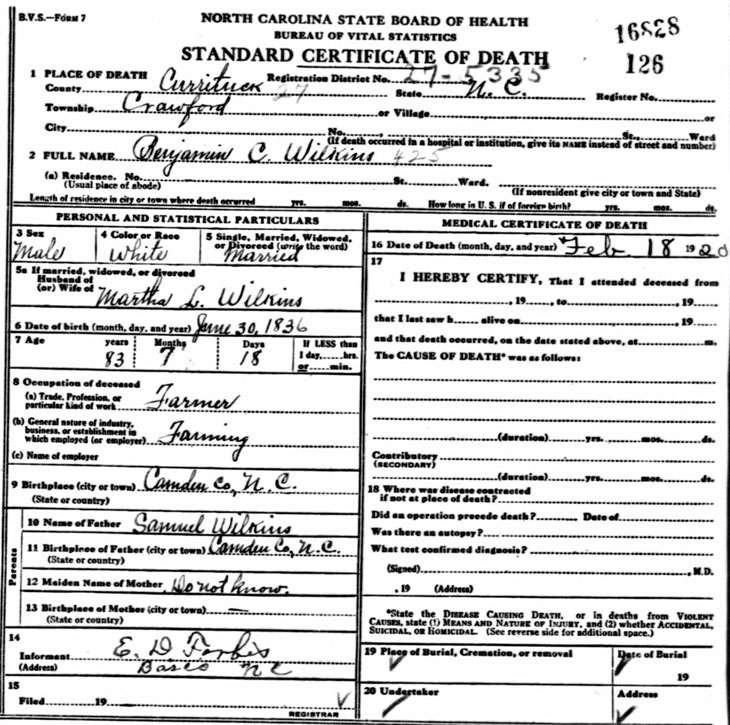 B.V.S.—FORM 7
NORTH CAROLINA STATE BOARD OF HEALTH
BUREAU OF VITAL STATISTICS
STANDARD CERTIFICATE OF DEATH
16828
126
1 PLACE OF DEATH Registration District No. 27-5335
County Currituck 27 State N.C. Register No.
Township Crawford or Village or
City No. St., Ward
(If death occurred in a hospital or institution, give its NAME instead of street and number)
2 FULL NAME Benjamin C. Wilkins 425
(a) Residence. No. St. Ward.
(Usual place of abode) (If nonresident give city or town and State)
Length of residence in city or town where death occurred yrs. mos. ds. How long in U. S. if of foreign birth? yrs. mos. ds.
PERSONAL AND STATISTICAL PARTICULARS
3 Sex 4 Color or Race 5 Single, Married, Widowed,
or Divorced (write the word)
Male White Married
5a If married, widowed, or divorced
Husband of
(or) Wife of Martha L. Wilkins
6 Date of birth (month, day, and year) June 30, 1836
7 Age years Months Days If LESS than
83 7 18 1 day, hrs.
or min.
8 Occupation of deceased
(a) Trade, Profession, or
particular kind of work Farmer
(b) General nature of industry,
business, or establishment in
which employed (or employer) Farming
(c) Name of employer
9 Birthplace (city or town) Camden Co, N.C.
(State or country)
Parents
10 Name of Father Samuel Wilkins
11 Birthplace of Father (city or town) Camden Co, N.C.
(State or country)
12 Maiden Name of Mother Do not know.
13 Birthplace of Mother (city or town) —
(State or country)
14
Informant E. D. Forbis
(Address) Basco N C
15
Filed 19
REGISTRAR
MEDICAL CERTIFICATE OF DEATH
16 Date of Death (month, day, and year) Feb. 18 1920
17
I HEREBY CERTIFY, That I attended deceased from
, 19 , to , 19
that I last saw h alive on , 19
and that death occurred, on the date stated above, at m.
The CAUSE OF DEATH* was as follows:
(duration) yrs. mos. ds.
Contributory
(SECONDARY)
(duration) yrs. mos. ds.
18 Where was disease contracted
if not at place of death?
Did an operation precede death? Date of
Was there an autopsy?
What test confirmed diagnosis?
(Signed) , M.D.
, 19 (Address)
*State the DISEASE CAUSING DEATH, or in deaths from VIOLENT
CAUSES, state (1) MEANS AND NATURE OF INJURY, and (2) whether ACCIDENTAL,
SUICIDAL, or HOMICIDAL. (See reverse side for additional space.)
19 Place of Burial, Cremation, or removal Date of Burial
19
20 Undertaker Address